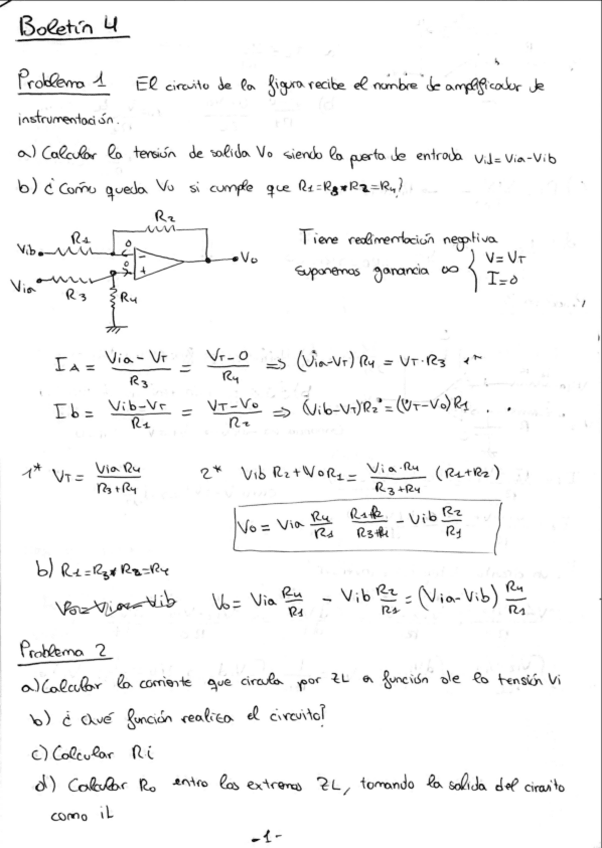 Boletín 4
Problema 1 El circuito de la figura recibe el nombre de amplificador de
instrumentación.
a) Calcular la tensión de salida Vo siendo la puerta de entrada Vid=Via-Vib
b) ¿Como queda Vo si cumple que R1=R3 y R2=R4?
R2
R1
Vib
Vo
Via
R3
R4
Tiene realimentación negativa
suponemos ganancia ∞ { V=VT
I=0
IA = (Via-VT)/R3 = (VT-0)/R4 => (Via-VT) R4 = VT·R3 1*
Ib = (Vib-VT)/R1 = (VT-Vo)/R2 => (Vib-VT)R2 = (VT-Vo)R1
1* VT = (Via R4)/(R3+R4) 2* Vib R2+VoR1 = (Via·R4)/(R3+R4) (R1+R2)
Vo = Via R4/R1 (R1+R2)/(R3+R4) - Vib R2/R1
b) R1=R3 y R2=R4
Vo=Via-Vib Vo = Via R4/R1 - Vib R2/R1 = (Via-Vib) R4/R1
Problema 2
a) Calcular la corriente que circula por ZL en función de la tensión Vi
b) ¿Qué función realiza el circuito?
c) Calcular Ri
d) Calcular Ro entre los extremos ZL, tomando la salida del circuito
como iL
-1-